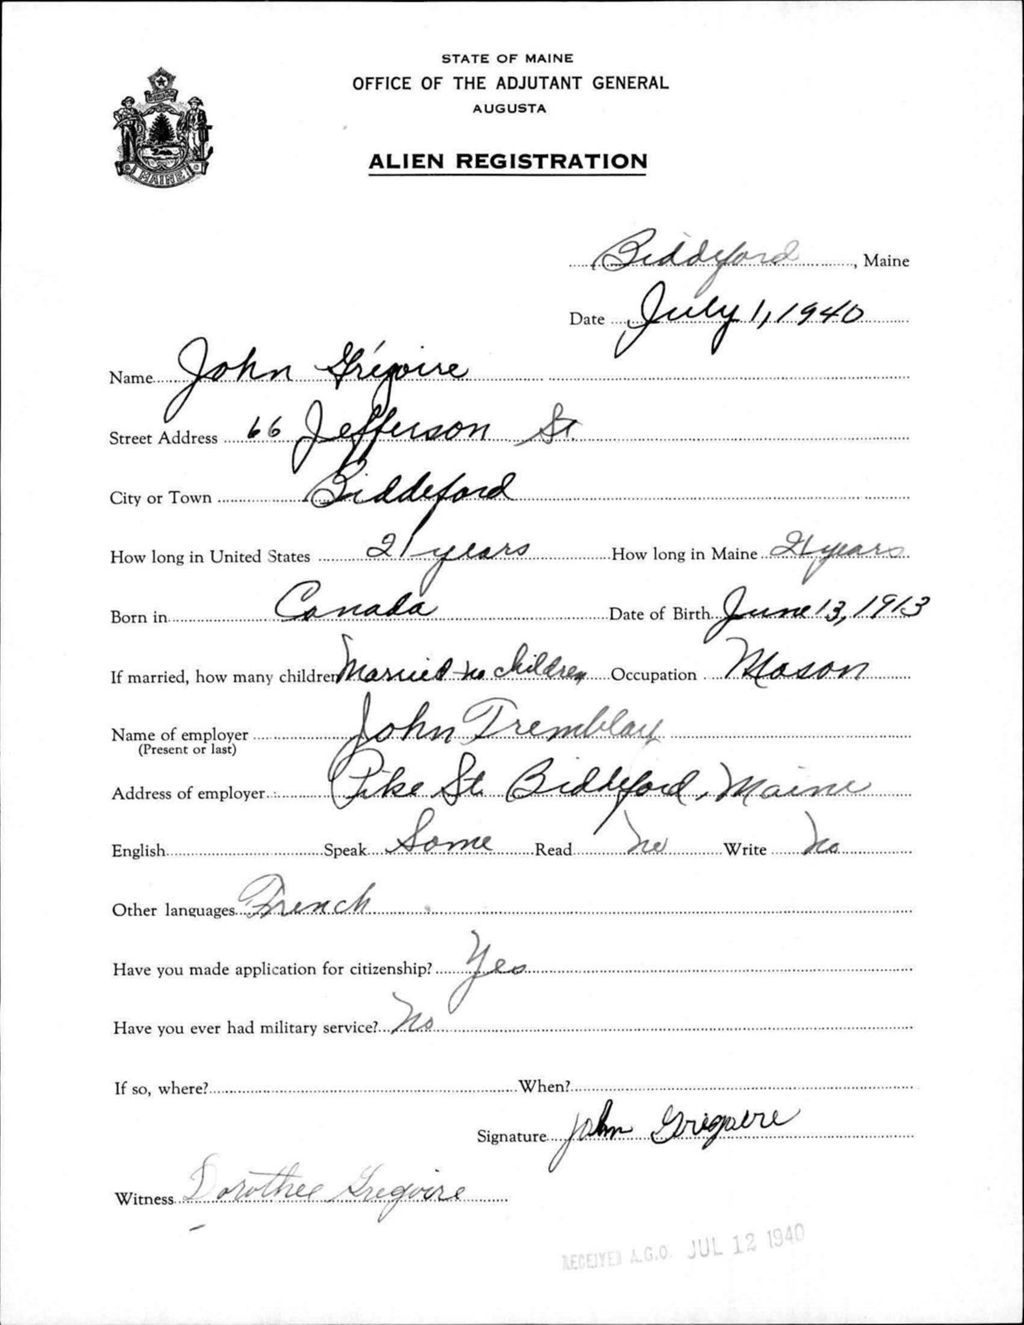 STATE OF MAINE
OFFICE OF THE ADJUTANT GENERAL
AUGUSTA
ALIEN REGISTRATION
MAINE
Biddeford, Maine
Date July 1, 1940
Name John Grégoire
Street Address 66 Jefferson St.
City or Town Biddeford
How long in United States 21 years How long in Maine 21 years
Born in Canada Date of Birth June 13, 1913
If married, how many children Married-no children Occupation Mason
Name of employer John Tremblay
(Present or last)
Address of employer Pike St. Biddeford, Maine
English Speak Some Read No Write No
Other languages French
Have you made application for citizenship? Yes
Have you ever had military service? No
If so, where? When?
Signature John Gregoire
Witness Dorothee Gregoire
RECEIVED A.G.O. JUL 12 1940